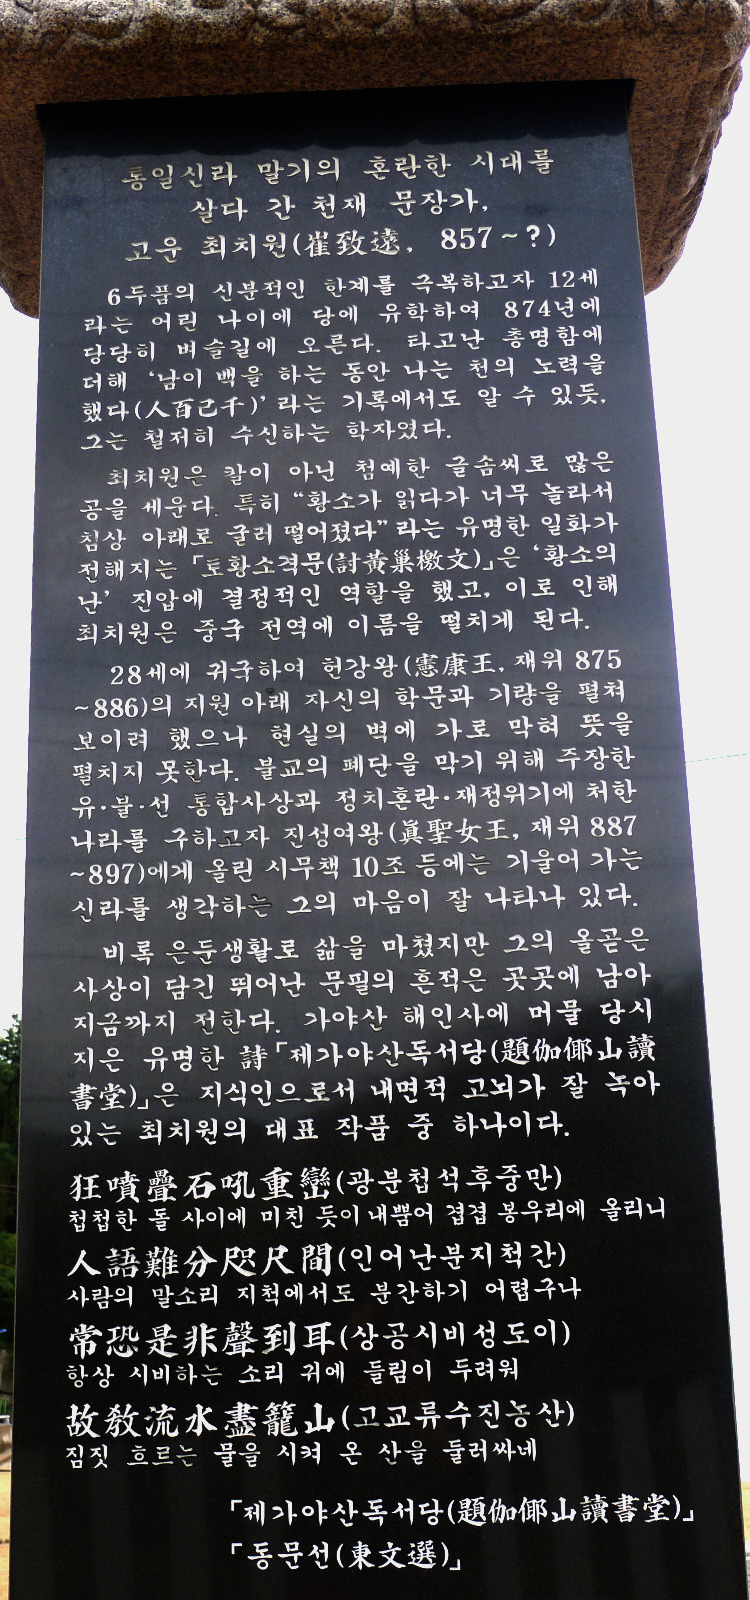 통일신라 말기의 혼란한 시대를
살다 간 천재 문장가,
고운 최치원(崔致遠, 857~?)
6두품의 신분적인 한계를 극복하고자 12세
라는 어린 나이에 당에 유학하여 874년에
당당히 벼슬길에 오른다. 타고난 총명함에
더해 ‘남이 백을 하는 동안 나는 천의 노력을
했다(人百己千)’라는 기록에서도 알 수 있듯,
그는 철저히 수신하는 학자였다.
최치원은 칼이 아닌 첨예한 글솜씨로 많은
공을 세운다. 특히 “황소가 읽다가 너무 놀라서
침상 아래로 굴러 떨어졌다”라는 유명한 일화가
전해지는 「토황소격문(討黃巢檄文)」은 ‘황소의
난’ 진압에 결정적인 역할을 했고, 이로 인해
최치원은 중국 전역에 이름을 떨치게 된다.
28세에 귀국하여 헌강왕(憲康王, 재위 875
~886)의 지원 아래 자신의 학문과 기량을 펼쳐
보이려 했으나 현실의 벽에 가로 막혀 뜻을
펼치지 못한다. 불교의 폐단을 막기 위해 주장한
유·불·선 통합사상과 정치혼란·재정위기에 처한
나라를 구하고자 진성여왕(眞聖女王, 재위 887
~897)에게 올린 시무책 10조 등에는 기울어 가는
신라를 생각하는 그의 마음이 잘 나타나 있다.
비록 은둔생활로 삶을 마쳤지만 그의 올곧은
사상이 담긴 뛰어난 문필의 흔적은 곳곳에 남아
지금까지 전한다. 가야산 해인사에 머물 당시
지은 유명한 詩「제가야산독서당(題伽倻山讀
書堂)」은 지식인으로서 내면적 고뇌가 잘 녹아
있는 최치원의 대표 작품 중 하나이다.
狂噴疊石吼重巒(광분첩석후중만)
첩첩한 돌 사이에 미친 듯이 내뿜어 겹겹 봉우리에 울리니
人語難分咫尺間(인어난분지척간)
사람의 말소리 지척에서도 분간하기 어렵구나
常恐是非聲到耳(상공시비성도이)
항상 시비하는 소리 귀에 들림이 두려워
故敎流水盡籠山(고교류수진농산)
짐짓 흐르는 물을 시켜 온 산을 둘러싸네
「제가야산독서당(題伽倻山讀書堂)」
「동문선(東文選)」